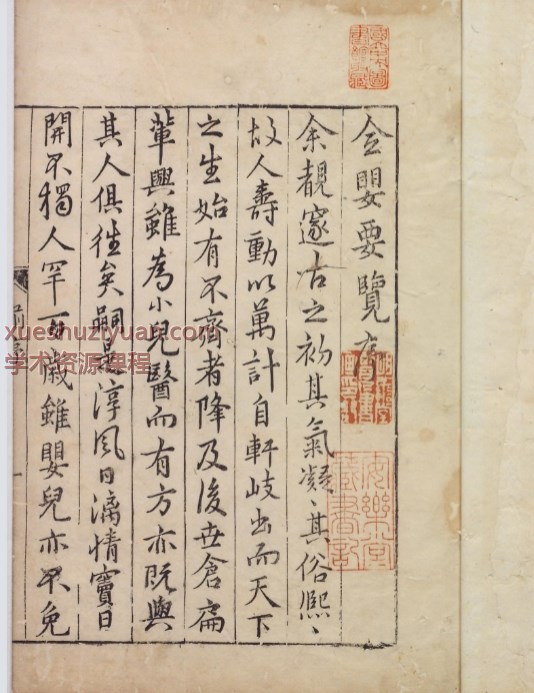 全嬰要覽序
余觀邃古之初其氣凝〻其俗熙〻
故人壽動以萬計自軒岐出而天下
之生始有不齊者降及後世倉扁
輩興雖為小兒醫而有方亦既與
其人俱往矣嗣是淳風日漓情竇日
開不獨人罕百歲雖嬰兒亦不免
前序
一
安樂堂藏書記
明善堂覽書畫印記
xueshuziyuan.com
学术资源课程